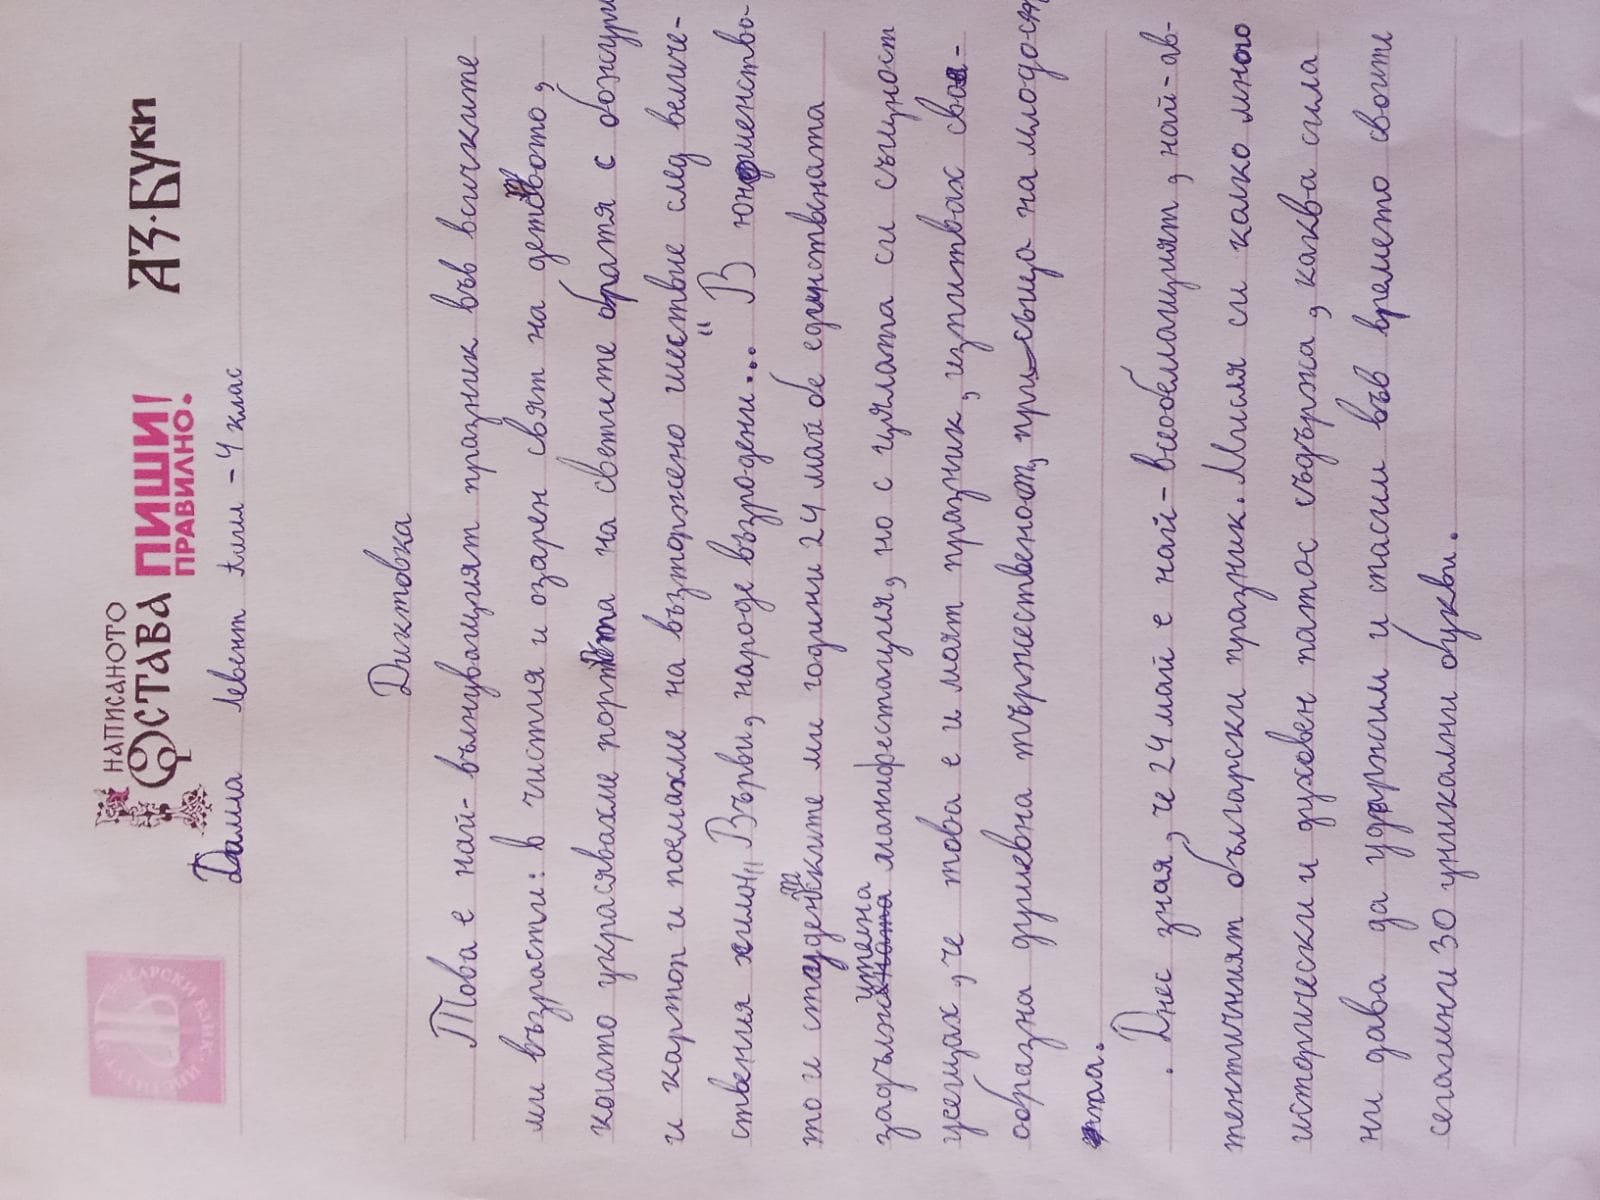 НАПИСАНОТО
ОСТАВА ПИШИ! АЗ·БУКИ
ПРАВИЛНО.
Дамла Левент Алиш - 4 клас
Диктовка
Това е най-вълнуващият празник във всичките
ми възрасти: в чистия и озарен свят на детството,
когато украсявахме портрета на светите братя с божури
и картоп и поемахме на възторжено шествие след величе-
ствения химн „Върви, народе възродени..." В юношенство-
то и студентските ми години 24 май бе единствената
задължителна манифестация, но с цялата си същност
усещах, че това е и моят празник, изпитвах свое-
образна душевна тържественост, присъща на младост-
та.
Днес зная, че 24 май е най-всеобемащият, най-ав-
тентичният български празник. Мисля си колко много
исторически и духовен патос съдържа, каква сила
ни дава да удържим и спасим във времето своите
сегашни 30 уникални букви.